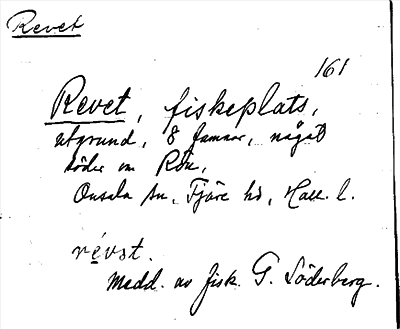 Revet
161
Revet, fiskeplats,
utgrund, 8 famnar, något
söder om
Onsala sn, Fjäre hd, Hall. l.
révət.
Medd. av fisk. G. Söderberg.